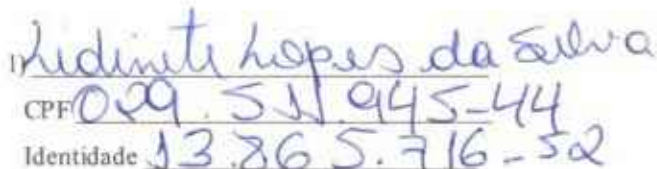 1) Lidinete Lopes da Silva
CPF 029.511.945-44
Identidade 13.865.716-52